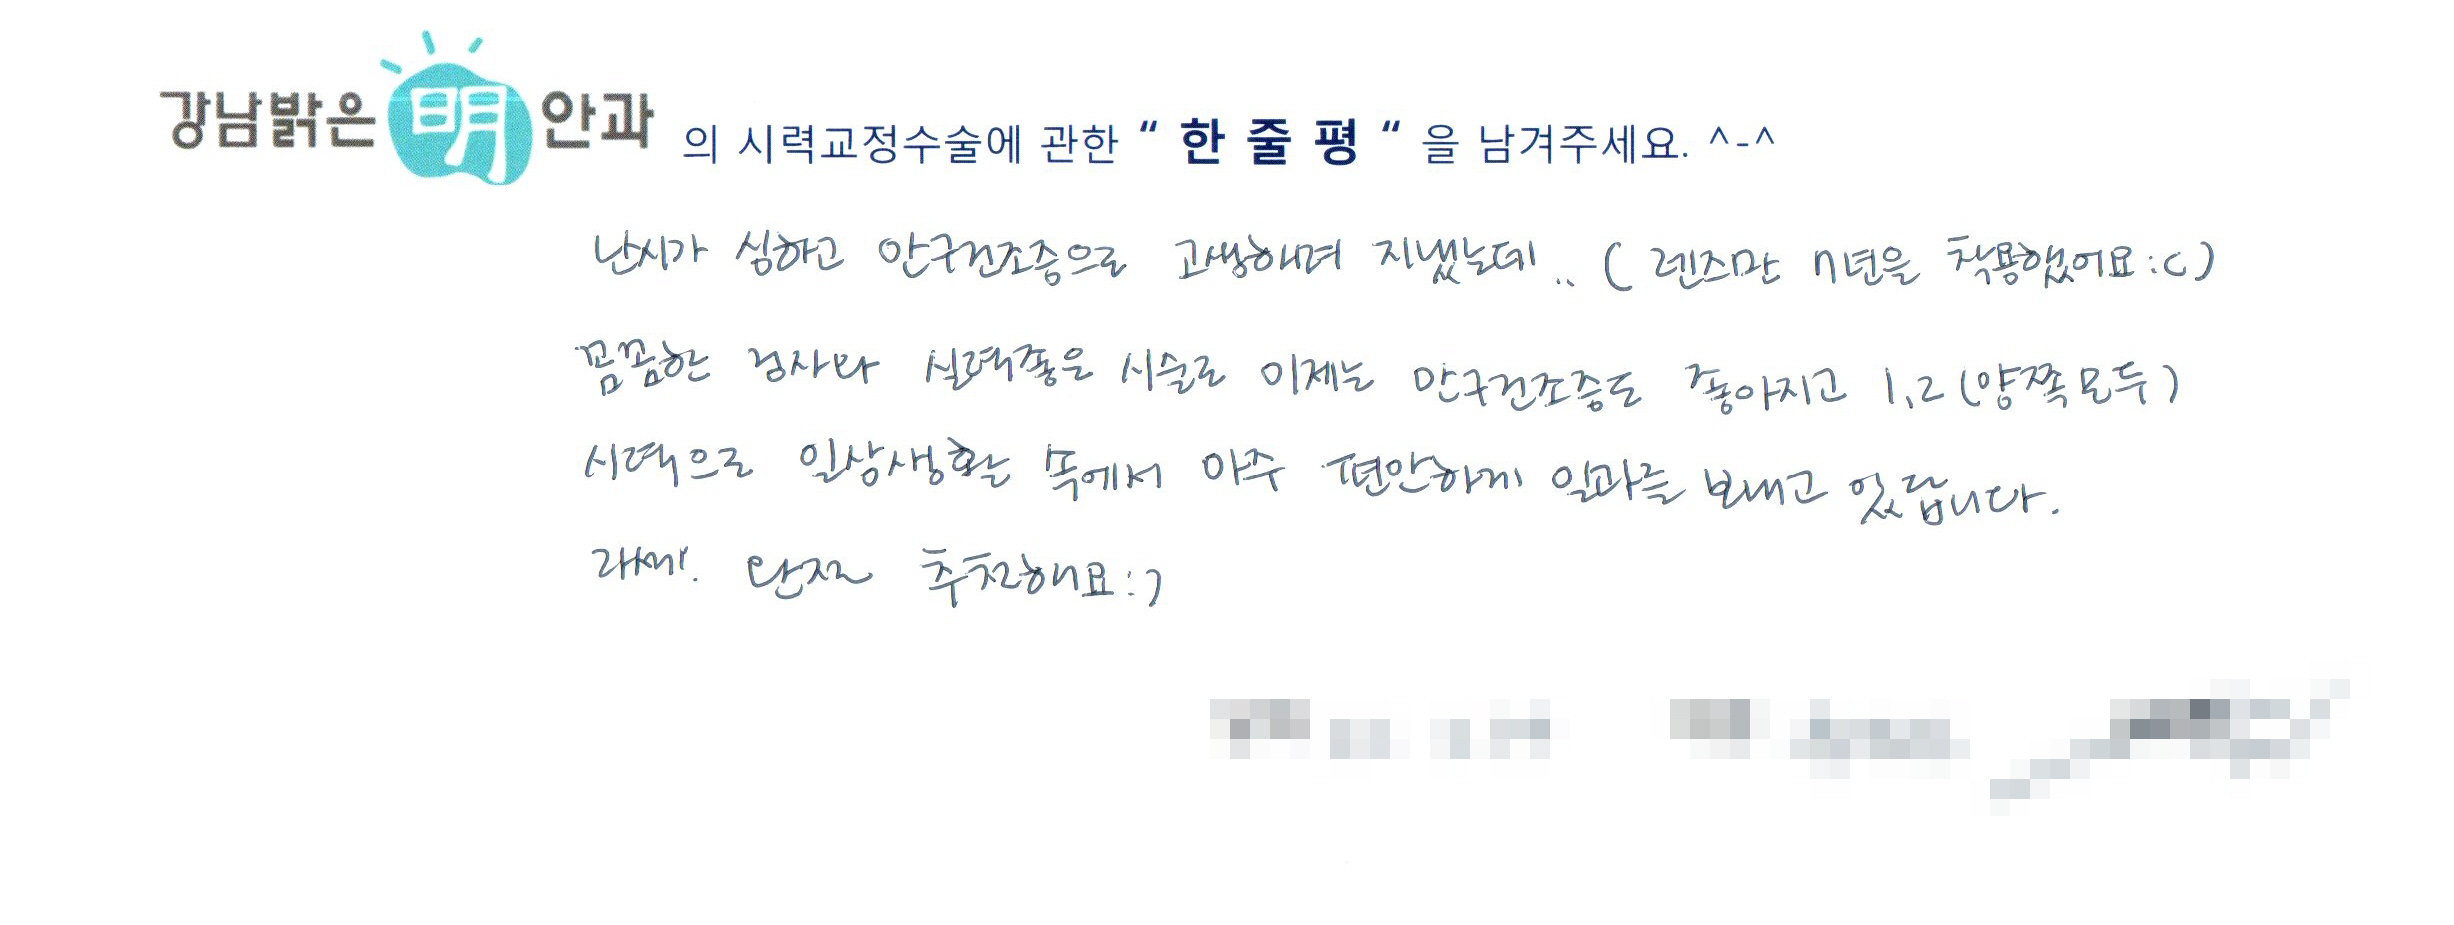 강남밝은 明 안과 의 시력교정수술에 관한 “ 한 줄 평 “ 을 남겨주세요. ^-^
난시가 심하고 안구건조증으로 고생하며 지냈는데.. ( 렌즈만 n년을 착용했어요:c)
꼼꼼한 검사와 실력좋은 시술로 이제는 안구건조증도 좋아지고 1.2 (양쪽모두)
시력으로 일상생활 속에서 아주 편안하게 일과를 보내고 있답니다.
라쎄! 완전 추천해요:)